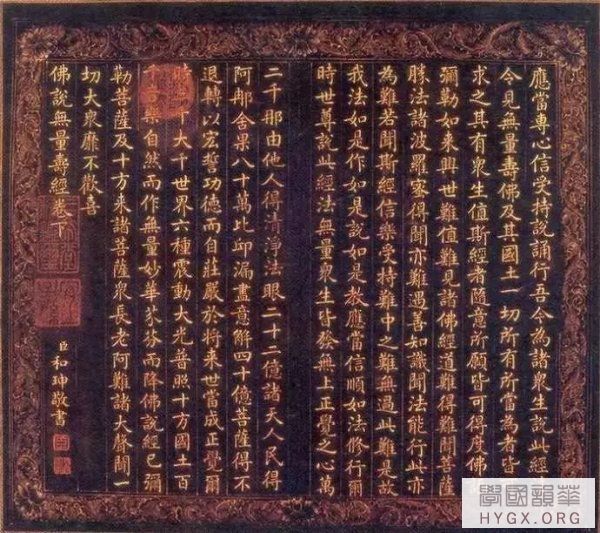 應當專心信受持說誦行吾今為諸衆生說此經
令見無量壽佛及其國土一切所有所當為者皆
求之其有衆生值斯經者隨意所願皆可得度佛
彌勒如來興世難值難見諸佛經道難得難聞菩薩
勝法諸波羅蜜得聞亦難遇善知識聞法能行此亦
為難若聞斯經信樂受持難中之難無過此難是故
我法如是作如是說如是教應當信順如法修行爾
時世尊說此經法無量衆生皆發無上正覺之心萬
二千那由他人得清淨法眼二十二億諸天人民得
阿那含果八十萬比邱漏盡意解四十億菩薩得不
退轉以宏誓功德而自莊嚴於將來世當成正覺爾
時千大千世界六種震動大光普照十方國土百
千音樂自然而作無量妙華芬芬而降佛說經已彌
勒菩薩及十方來諸菩薩衆長老阿難諸大聲聞一
切大衆靡不歡喜
佛說無量壽經卷下
臣和珅敬書
學國韻華
HYGX.ORG